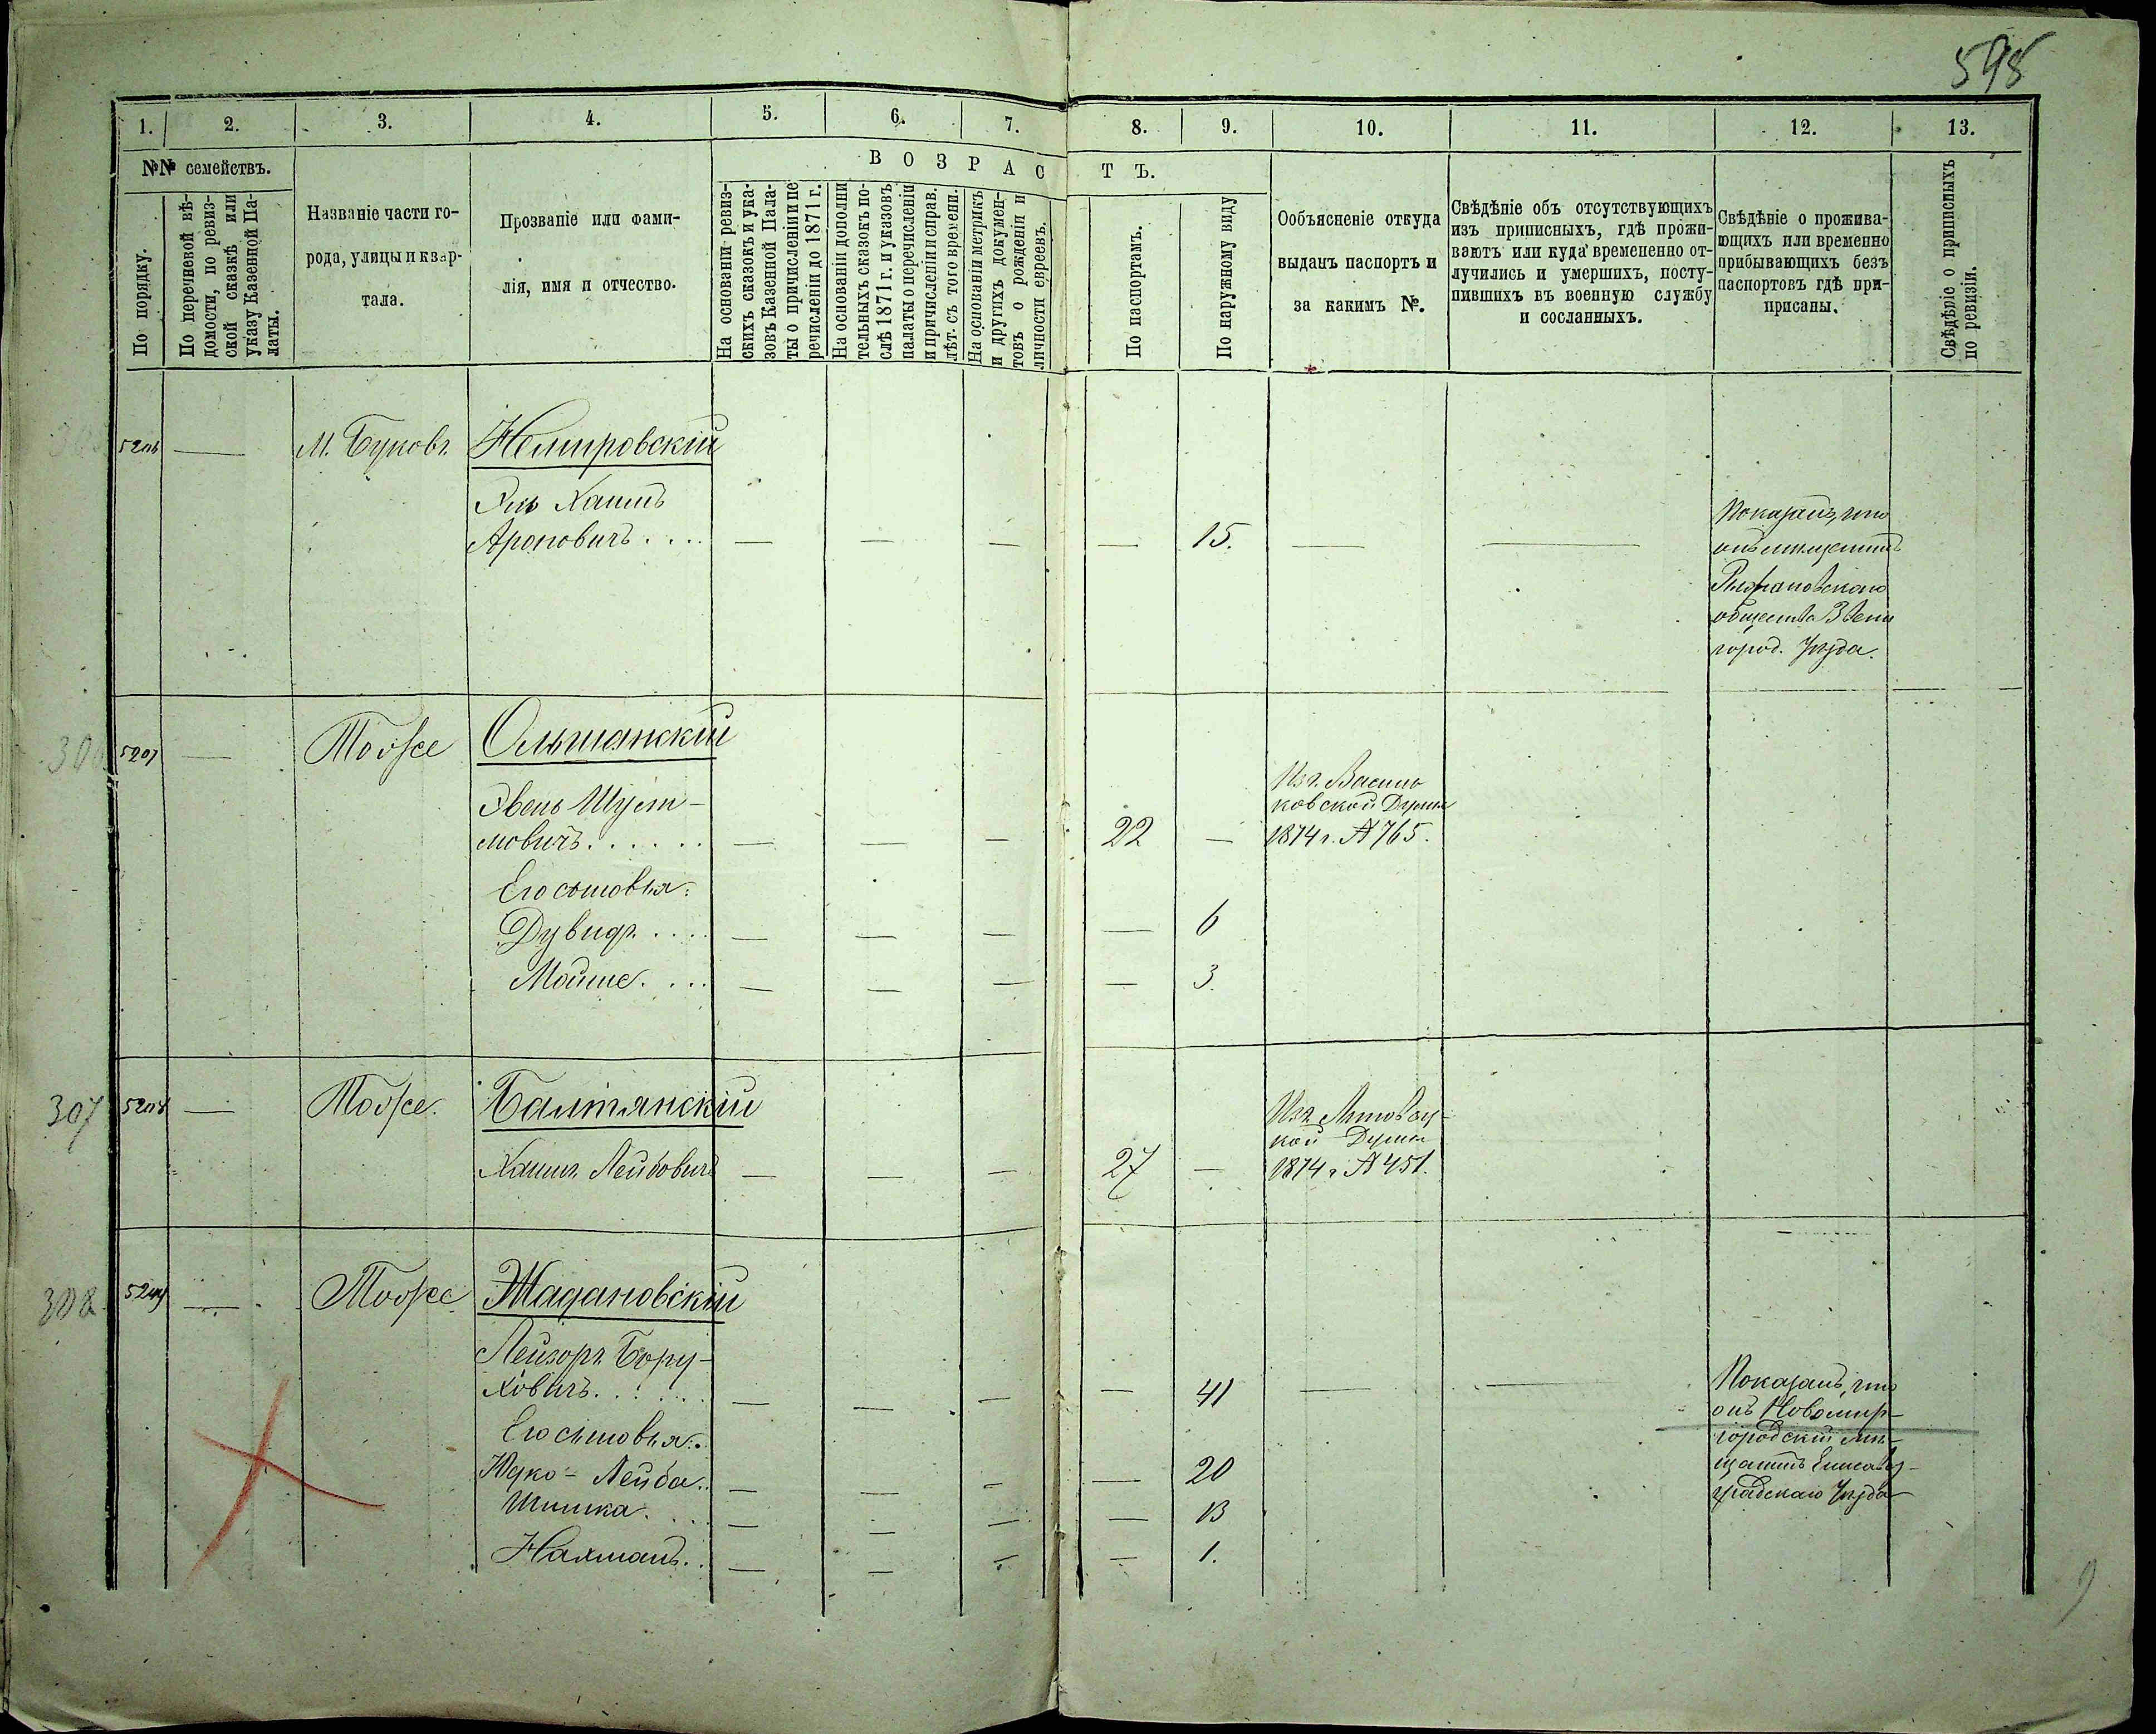 595
1. 2. 3. 4. 5. 6. 7. 8. 9. 10. 11. 12. 13.
№№ семействъ.
По порядку.
По перечневой вѣ-
домости, по ревиз-
ской сказкѣ или
указу Казенной Па-
латы.
Названіе части го-
рода, улицы и квар-
тала.
Прозваніе или фами-
лія, имя и отчество.
ВОЗРАСТЪ.
На основаніи ревиз-
скихъ сказокъ и ука-
зовъ Казенной Пала-
ты о причисленіи и пе
речисленіи до 1871 г.
На основаніи дополни
тельныхъ сказокъ по-
слѣ 1871 г. и указовъ
палаты о перечисленіи
и причисленіи и справ.
лѣт. съ того времени.
На основаніи метрикъ
и другихъ докумен-
товъ о рожденіи и
личности евреевъ.
По паспортамъ.
По наружному виду
Ообъясненіе откуда
выданъ паспортъ и
за какимъ №.
Свѣдѣніе объ отсутствующихъ
изъ приписныхъ, гдѣ прожи-
ваютъ или куда временно от-
лучились и умершихъ, посту-
пившихъ въ военную службу
и сосланныхъ.
Свѣдѣніе о прожива-
ющихъ или временно
прибывающихъ безъ
паспортовъ гдѣ при-
присаны.
Свѣдѣніе о приписныхъ
по ревизіи.
5206 — М. Буковъ Немировскій
Хаимъ
Ароновичъ.... — — — — 15. — —
Показанъ, что
онъ мещанинъ
Рыжановскаго
общества Звени
город. Уѣзда.
306 5207 — Тоже Ольшанскій
Эвень Шуст-
мовичъ...... — — — 22 —
Изъ Василь
ковской Думы
1874 г. № 765.
Его сыновья:
Дувидъ.... — — — — 6
Мойше.... — — — — 3.
307 5208 — Тоже. Балтянскій
Хаимъ Лейбовичъ — — — 27 —
Изъ
кой Думы
1874 г. № 451.
308 5209 — Тоже Жадановскій
Лейзоръ Бору-
ховичъ...... — — — — 41 — —
Показанъ, что
онъ Новомир-
городскій мѣ-
щанинъ Елисавет-
градскаго Уѣзда
Его сыновья:
Юдко-Лейба.. — — — — 20
Шимка.... — — — — 13
Нахманъ.. — — — — 1.